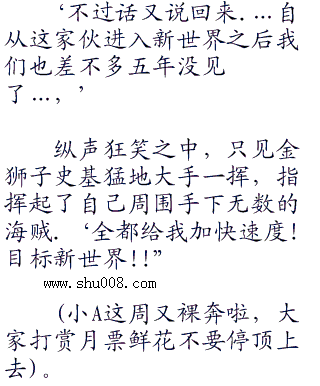 ‘不过话又说回来....自
从这家伙进入新世界之后我
们也差不多五年没见
了...，’
纵声狂笑之中，只见金
狮子史基猛地大手一挥，指
挥起了自己周围手下无数的
海贼.‘全都给我加快速度!
目标新世界!!”
www.shu008.com
(小A这周又裸奔啦，大
家打赏月票鲜花不要停顶上
去)。